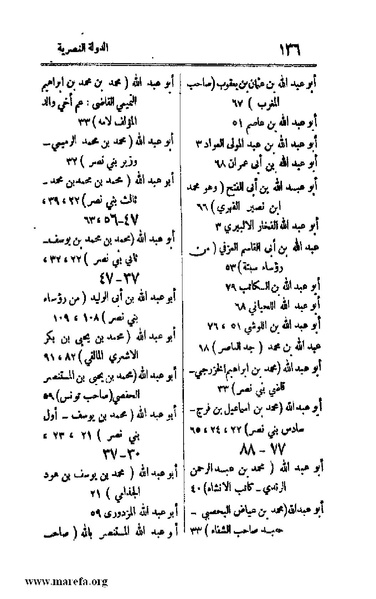 ١٣٦
الدولة النصرية
أبو عبد الله بن عثمان بن يعقوب (صاحب
المغرب) ٦٧
أبو عبد الله بن عاصم ٥١
أبو عبد الله بن عبد المولى العواد ٣
أبو عبد الله بن أبى عمران ٦٨
أبو عبد الله بن أبى الفتح (وهو محمد
ابن نصير الفهري) ٦٦
أبو عبد الله الفخار الالبيري ٣
عبد الله بن أبى القاسم العزفي (من
رؤساء سبتة) ٥٣
أبو عبد الله بن الكاتب ٧٩
أبو عبد الله اللحياني ٦٨
أبو عبد الله بن اللوشي ٥١ ، ٧٦
عبد الله بن محمد (جد الناصر) ٦٨
أبو عبد الله (محمد بن ابراهيم الخزرجي-
قاضي بني نصر) ٣٣
أبو عبد الله (محمد بن اسماعيل بن فرج-
سادس بني نصر) ٢٢ ، ٢٤ ، ٦٥
٧٧-٨٨
أبو عبد الله (محمد بن عبد الرحمن
الرندي- كاتب الانشاء) ٤٠
أبو عبد الله (محمد بن عياض اليحصبي-
حفيد صاحب الشفاء) ٣٣
أبو عبد الله (محمد بن محمد بن ابراهيم
التميمي القاضي: عم أخي والد
المؤلف لامه) ٣٣
أبو عبد الله (محمد بن محمد الرميمي-
وزير بني نصر) ٣٢
أبو عبد الله (محمد بن محمد بن محمد-
ثالث بني نصر) ٢٢ ، ٣٩ ،
٤٧-٥٦ ، ٦٣
أبو عبد الله (محمد بن محمد بن يوسف-
ثاني بني نصر) ٢٢ ، ٣٢ ،
٣٧-٤٧
أبو عبد الله بن أبى الوليد (من رؤساء
بني نصر) ١٠٨ ، ١٠٩
أبو عبد الله (محمد بن يحيى بن بكر
الاشعري المالقي) ٨٢ ، ٩١
أبو عبد الله (محمد بن يحيى بن المستنصر
الحفصي (صاحب تونس) ٥٩
أبو عبد الله (محمد بن يوسف- أول
بني نصر) ٢١ ، ٢٣ ،
٣٠-٣٧
أبو عبد الله (محمد بن يوسف بن هود
الجذامي) ٢١
أبو عبد الله المزدوري ٥٩
أبو عبد الله المستنصر بالله (صاحب
www.marefa.org